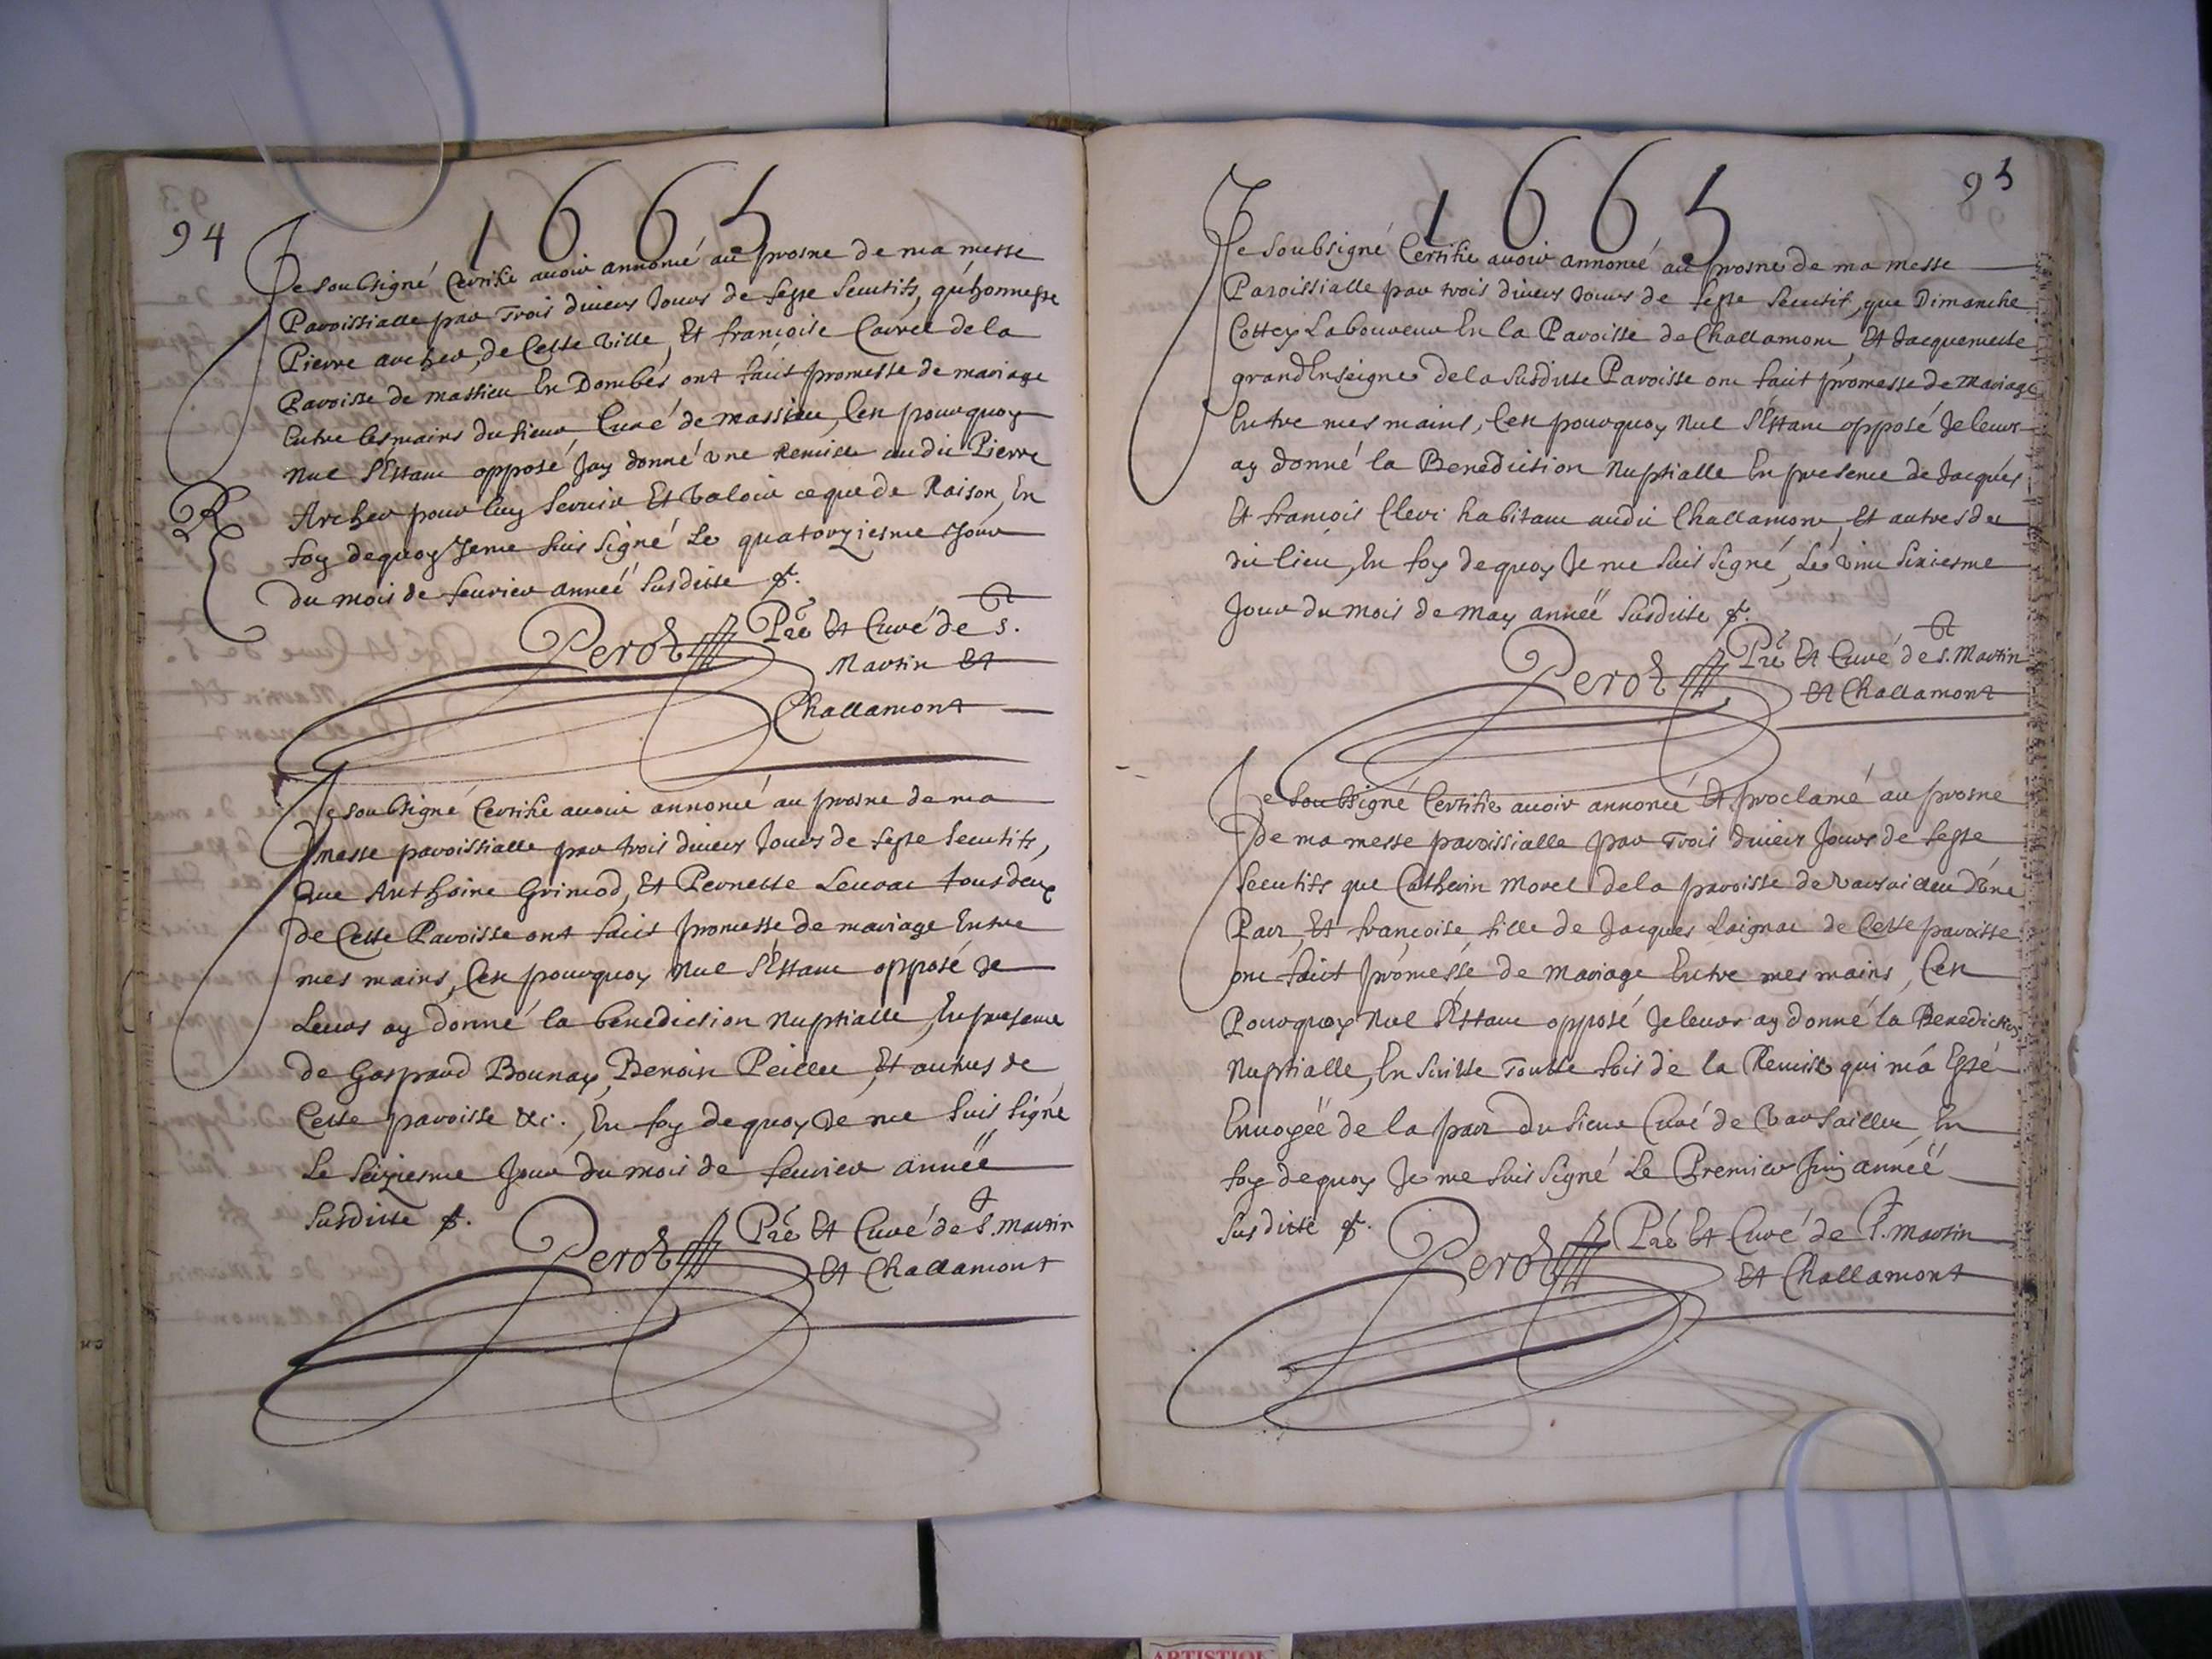 94
1665
Je soubsigné Certifie avoir annoncé au prosne de ma messe
Paroissialle par Trois divers Jours de feste secutifs, qu'honneste
Pierre archer, de Cette Ville, Et françoise Cairel de la
Paroisse de massieu En Dombes ont faict promesse de mariage
Entre les mains du sieur Curé de massieu, C'est pourquoy
Nul s'Estant opposé J'ay donné une Remise audit Pierre
Archer pour luy servir Et valoir ce que de Raison, En
foy dequoy Je me suis signé Le quatorziesme Jour
du mois de feurier anneé susditte &.
R
Perot Pre Et Curé de s.
Martin Et
Challamont
Je soubsigné Certifie avoir annoncé au prosne de ma
messe paroissialle par trois divers Jours de feste secutifs,
que Anthoine Grimod, Et Pernette Leurat tous deux
de Cette Paroisse ont faict promesse de mariage Entre
mes mains, C'est pourquoy Nul s'Estant opposé Je
Leurs ay donné la benediction Nuptialle, En presence
de Gaspard Bounay, Benoist Peillu, Et autres de
Cette paroisse &c. En foy dequoy Je me suis signé
Le seiziesme Jour du mois de feurier anneé
susditte &.
Perot Pre Et Curé de S. Martin
Et Challamont
95
1665
Je soubsigné Certifie avoir annoncé au prosne de ma messe
Paroissialle par trois divers Jours de feste secutif, que Dimanche
Cottey Laboureur En la Paroisse de Challamont, Et Jacquemette
grandEnseigne de la susditte Paroisse ont faict promesse de Mariage
Entre mes mains, C'est pourquoy Nul s'Estant opposé Je leurs
ay donné la Benediction Nuptialle En presence de Jacques
Et françois Clerc habitant audit Challamont, Et autres du
dit lieu, En foy dequoy Je me suis signé, Le vint sixiesme
Jour du mois de may anneé susditte &.
Perot Pre Et Curé de s. Martin
Et Challamont
Je soubsigné Certifie avoir annoncé Et proclamé au prosne
de ma messe paroissialle par Trois divers Jours de feste
secutifs que Catherin Morel de la paroisse de Varsailleu d'une
Part, Et françoise, fille de Jacques Laignac de Cette paroisse
ont faict promesse de Mariage Entre mes mains, C'est
Pourquoy Nul s'Estant opposé Je leurs ay donné la Benediction
Nuptialle, En suitte Toutte fois de la Remise qui m'a Esté
Envoyeé de la part du sieur Curé de Varsailleu, En
foy dequoy Je me suis signé Le Premier Juin anneé
susditte &.
Perot Pre Et Curé de S. Martin
Et Challamont